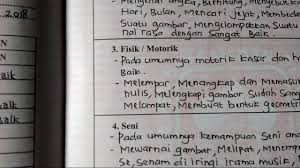 2018
Mengenal angka, Berhitung, Mengenal
Hari, Bulan, Mencari jejak, Membeda
Suatu gambar, Mengelompokkan Suatu
nal rasa dengan Sangat Baik.
N
N
3. Fisik / Motorik
- Pada umumnya motorik kasar dan
Baik.
aik
- Melempar, Menangkap dan Memasu
nulis, Melengkapi gambar Sudah Sang
Melompat, Membuat bentuk geometri
aik
4. Seni
- Pada umumnya kemampuan Seni an
- Mewarnai gambar, Melipat, Menem
Baik
se, Senam di iringi irama musik,